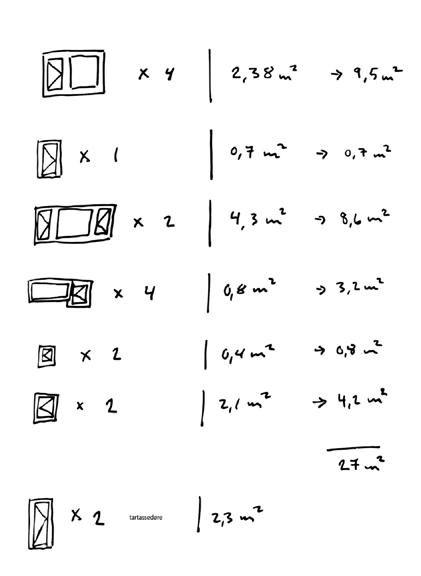 x 4 | 2,38 m² → 9,5 m²
x 1 | 0,7 m² → 0,7 m²
x 2 | 4,3 m² → 8,6 m²
x 4 | 0,8 m² → 3,2 m²
x 2 | 0,4 m² → 0,8 m²
x 2 | 2,1 m² → 4,2 m²
27 m²
x 2 tartassedøre | 2,3 m²